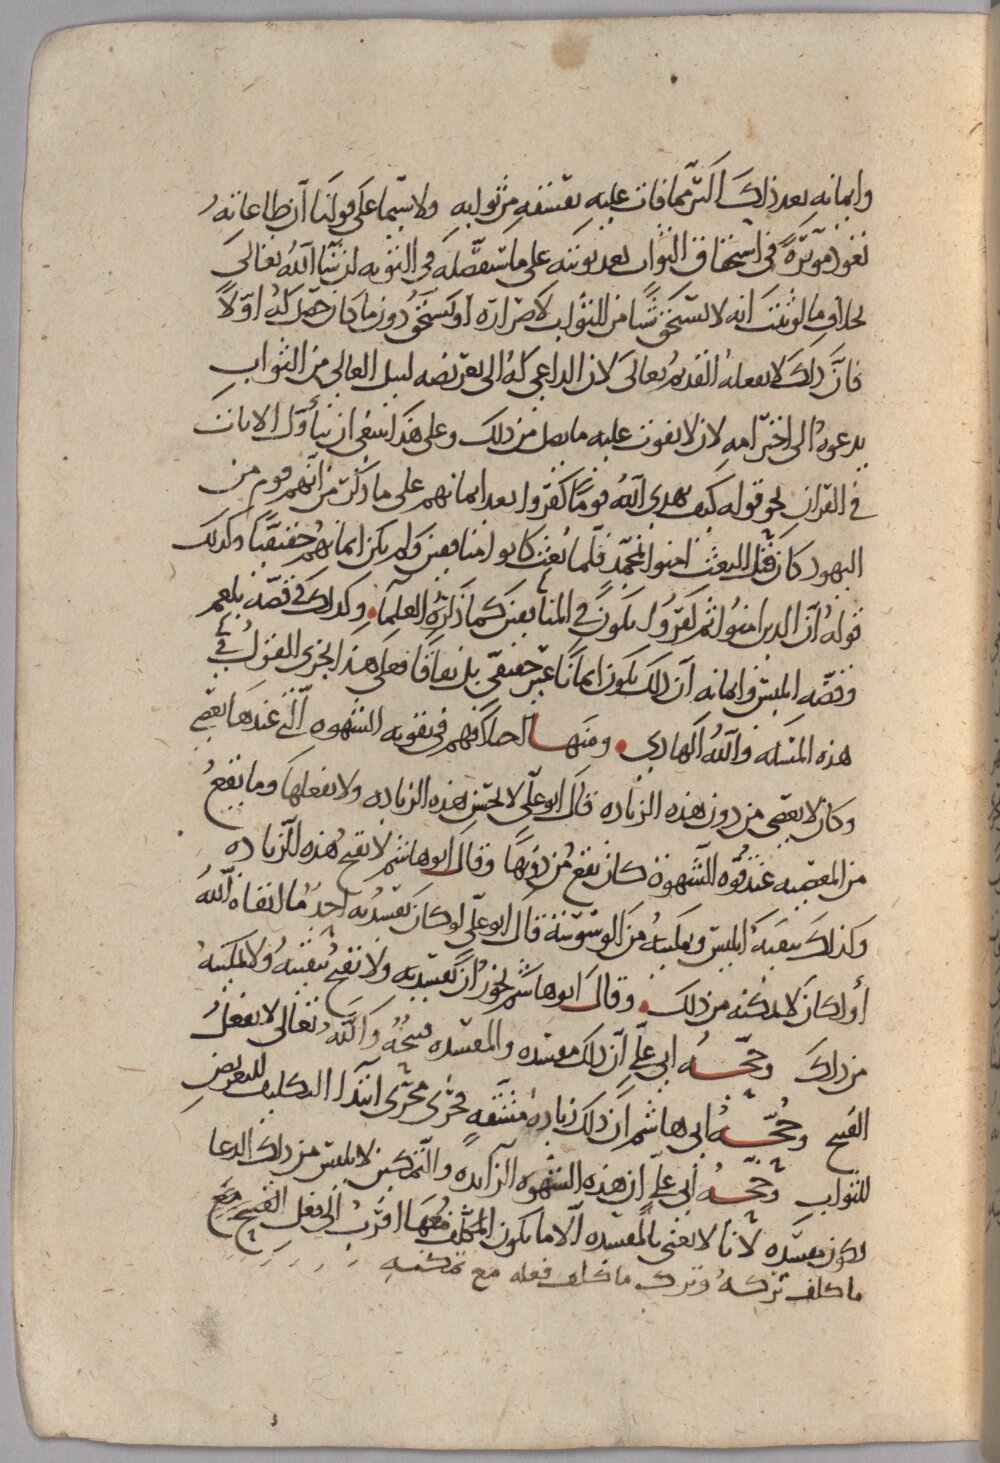 وايمانه بعد ذلك اكثر مما فات عليه بفسقه من ثوابه ولا سيما على قولنا ان طاعاته
تعود موثرة في استحقاق الثواب بعد توبته على ما سنفصله في التوبه ان شا الله تعالى
بخلاف ما لو ثبت انه لا يستحق شيا من الثواب لاصراره او يستحق دون ما كان حصل له اولا
فان ذلك لا يفعله القديم تعالى لان الداعي له الى تعريضه لنيل العالي من الثواب
يدعوه الى اخترامه لان لا يفوت عليه ما يصل من ذلك وعلى هذا ينبغي ان يتأول الايات
في القران نحو قوله كيف يهدي الله قوما كفروا بعد ايمانهم على ما ذكر من انهم قوم من
اليهود كان قبل البعث امنوا بمحمد فلما بعث كانوا منافقين ولم يكن ايمانهم حقيقيا وكذلك
قوله ان الذين امنوا ثم كفروا يكون في المنافقين كما ذكره العلما وكذلك في قصة بلعم
وقصه ابليس وايمانه ان ذلك يكون ايمانا غير حقيقي بل نفاقا فعلى هذا يجري القول في
هذه المسله والله الهادي ومنها اختلافهم في تقويه الشهوه التي عندها يعصي
وكان لا يعصي من دون هذه الزياده قال ابو علي لا يحسن هذه الزياده ولا يفعلها وما يقع
من المعصيه عند قوه الشهوة كان يقع من دونها وقال ابو هاشم لا يقبح هذه الزياده
وكذلك تبقيه ابليس وتمكينه من الوسوسة قال ابو علي لو كان يفسد به احد ما ابقاه الله
أو لكان لا يمكنه من ذلك وقال ابو هاشم يجوز ان يفسد به ولا تقبح تبقيته ولا تمكينه
من ذلك وحجه ابي علي ان ذلك مفسده والمفسده قبيحه والله تعالى لا يفعل
القبيح وحجه ابي هاشم ان ذلك زيادة مشقه فجرى مجرى ابتدا التكليف للتعريض
للثواب وحجه أبي علي ان هذه الشهوه الزايده والتمكين لابليس من ذلك الدعا
يكون مفسده لانا لا نعني بالمفسده الا ما يكون المكلف معها اقرب الى فعل القبيح مع
ما كلف تركه وترك ما كلف فعله مع تمكنه